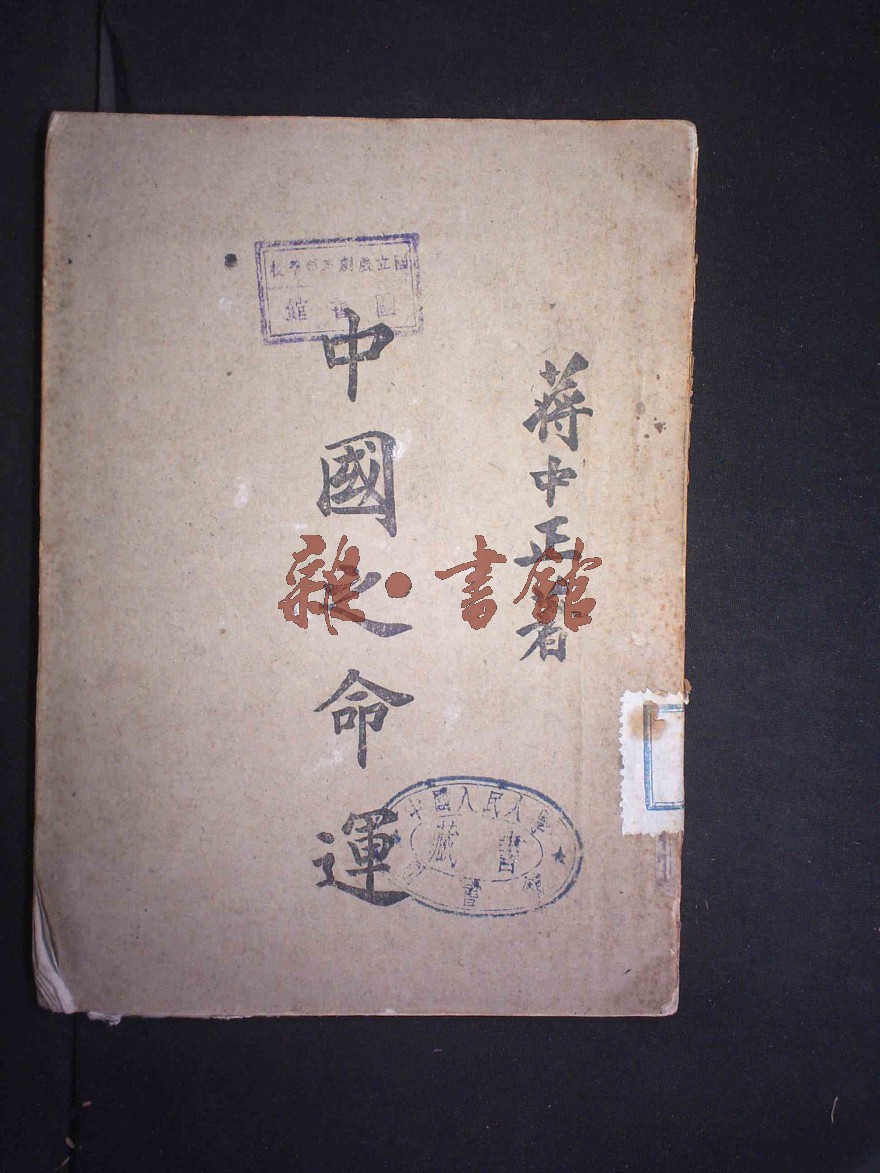 國立戲劇專科學校
圖書館
蔣中正著
中國之命運
雜·書館
中國人民大學
圖書館
藏書